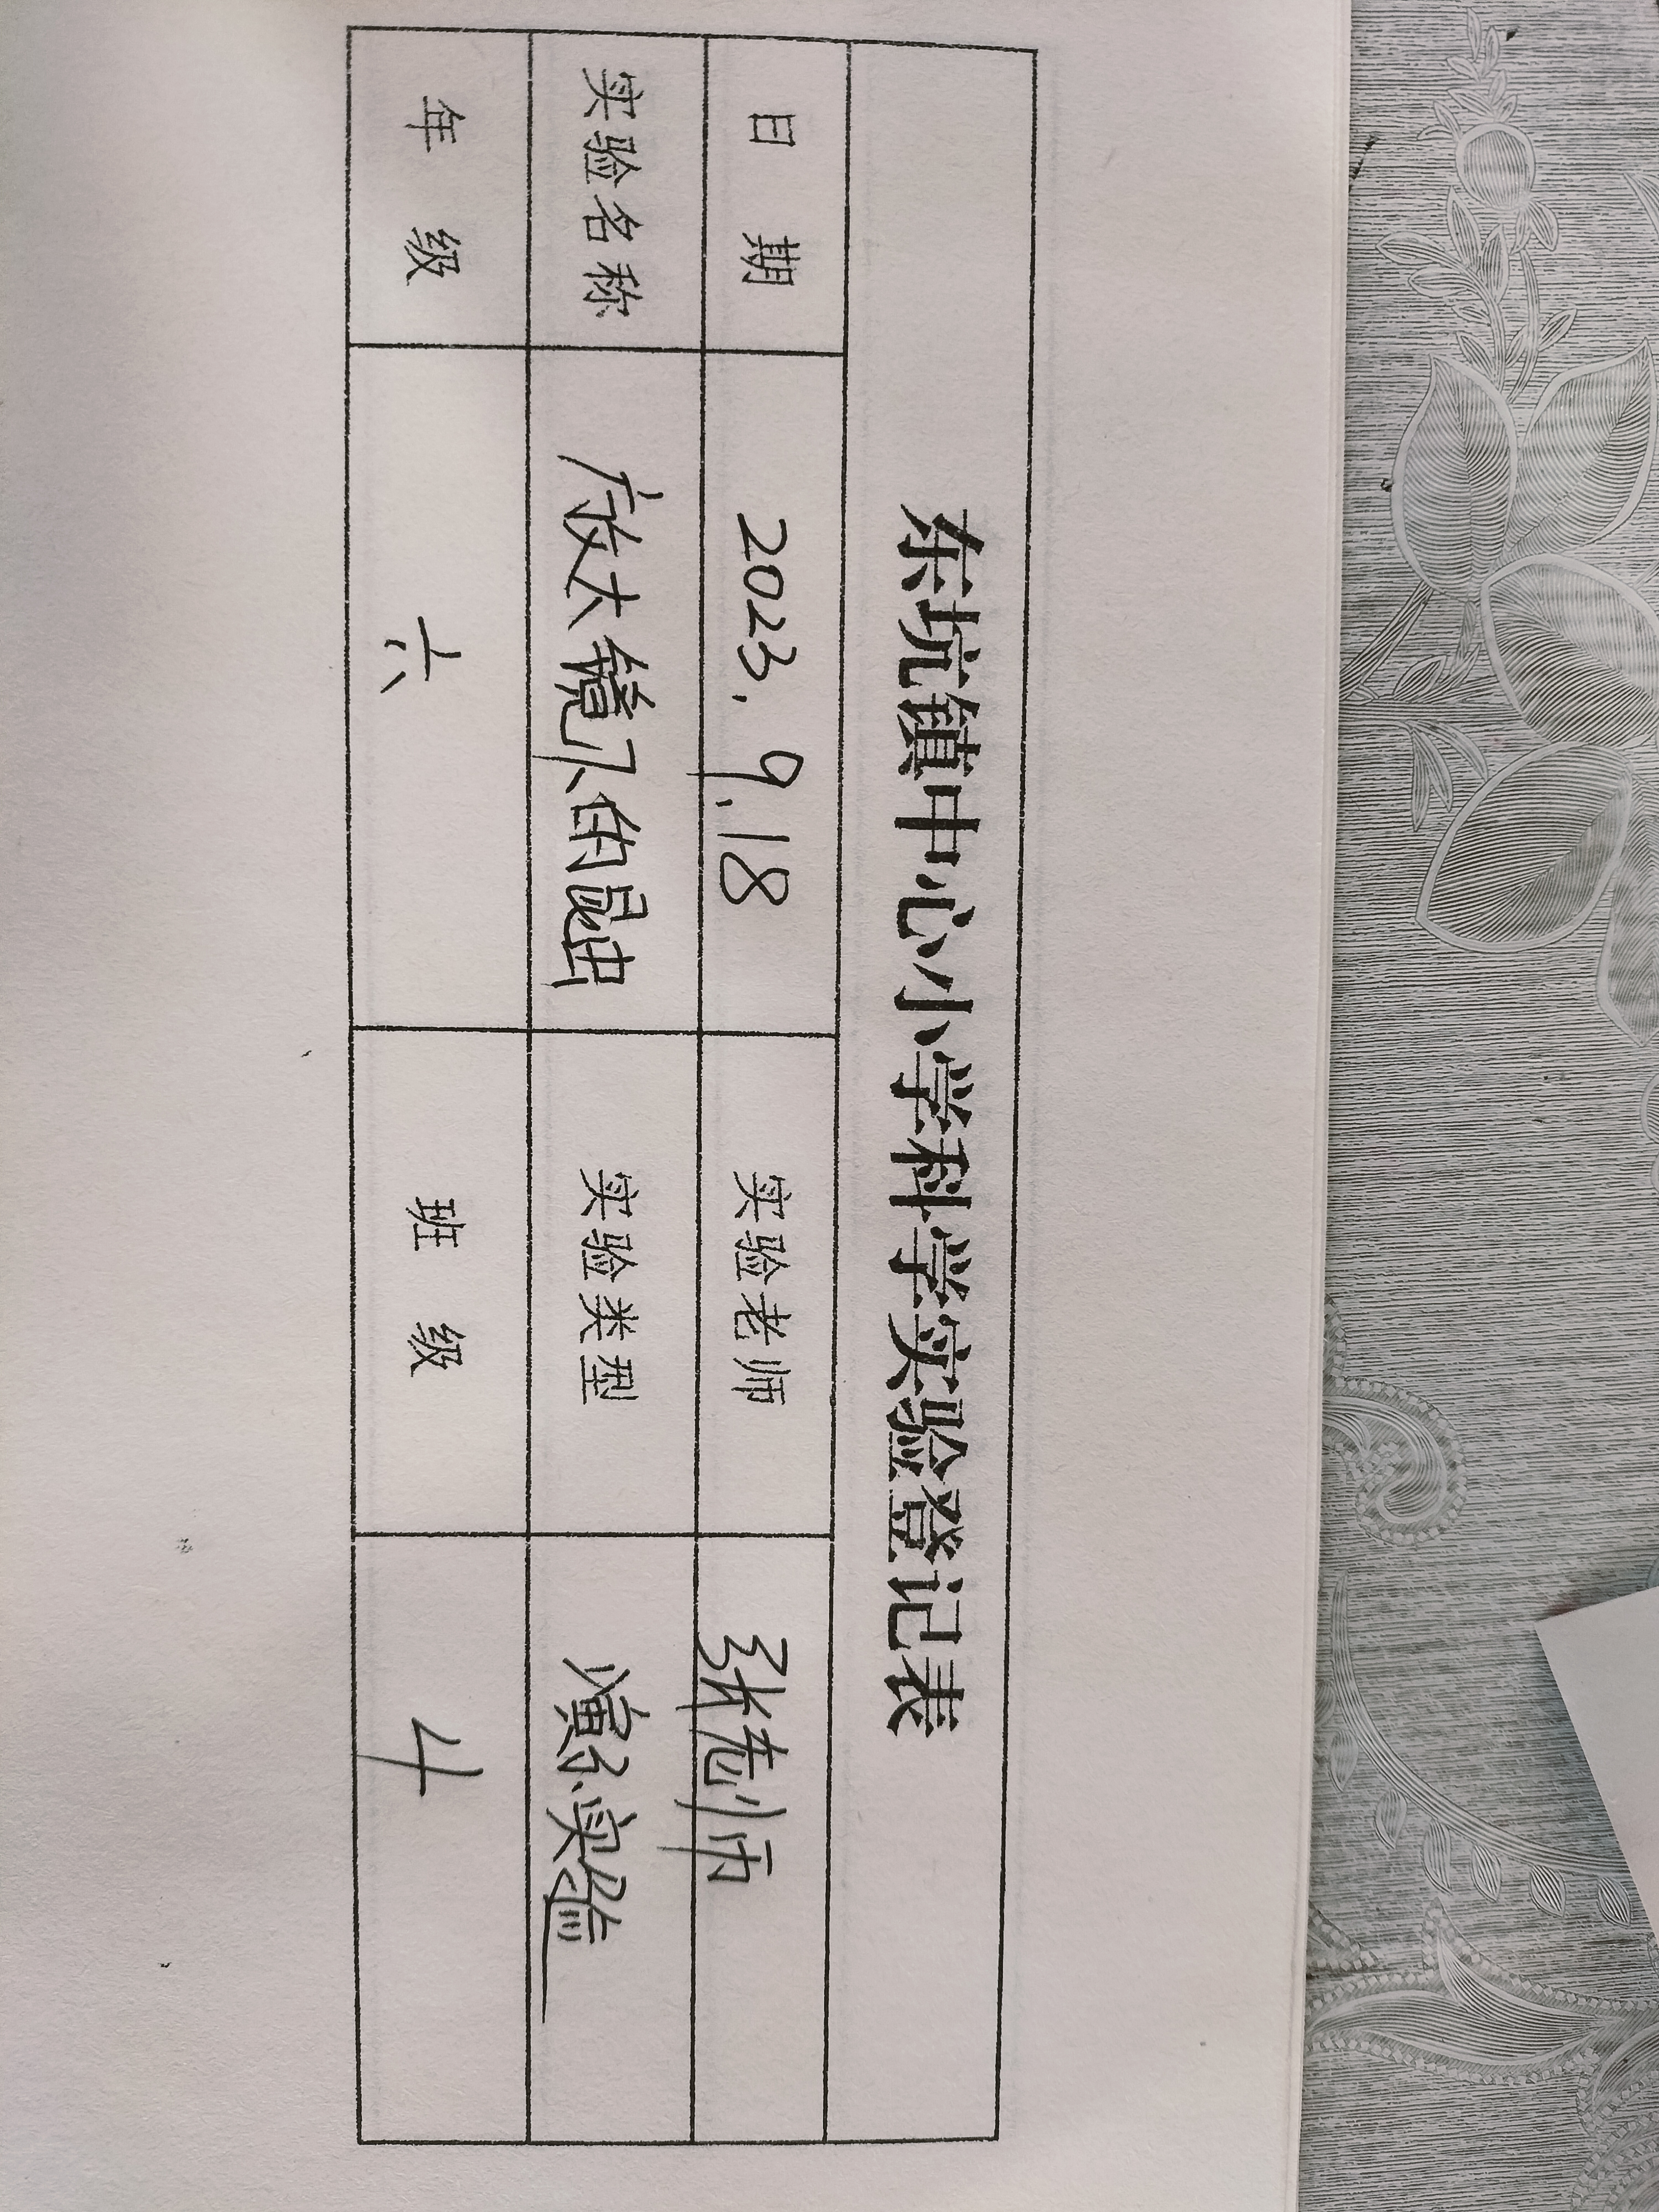 东坑镇中心小学科学实验登记表
日 期 2023.9.18 实验老师 张老师
实验名称 放大镜下的昆虫 实验类型 演示实验
年 级 六 班 级 4